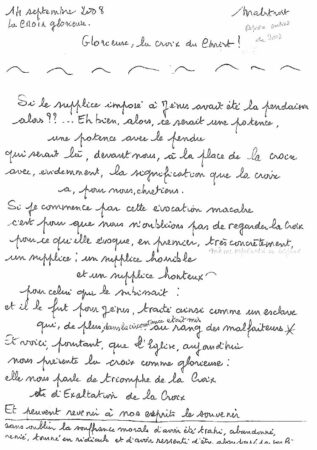 14 septembre 2008
La Croix glorieuse.
Malestroit
Glorieuse, la croix du Christ !
Si le supplice imposé à Jésus avait été la pendaison
alors ??... Eh bien, alors, ce serait une potence,
une potence avec le pendu
qui serait là, devant nous, à la place de la croix
avec, évidemment, la signification que la croix
a, pour nous, chrétiens.
Si je commence par cette évocation macabre
c'est pour que nous n'oublions pas de regarder la Croix
pour ce qu'elle évoque, en premier, très concrètement,
un supplice ; un supplice horrible
et un supplice honteux
pour celui qui le subissait :
et il le fut pour Jésus, traité ainsi comme un esclave
qui, de plus, était mis au rang des malfaiteurs
Et voici, pourtant, que l'Eglise, aujourd'hui
nous présente la croix comme glorieuse :
elle nous parle de triomphe de la Croix
d'Exaltation de la Croix
Et peuvent revenir à nos esprits le souvenir
sans oublier la souffrance morale d'avoir été trahi, abandonné,
renié, tourné en ridicule et d'avoir ressenti d'être abandonné